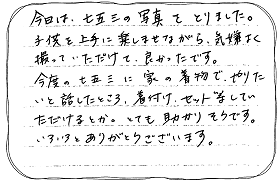 今日は、七五三の写真をとりました。
子供を上手に楽しませながら、気嫌よく
撮っていただけて、良かったです。
今度の七五三に家の着物で、やりた
いと話したところ、着付け、セット等してい
ただけるとか。とても助かりそうです。
いろいろとありがとうございます。